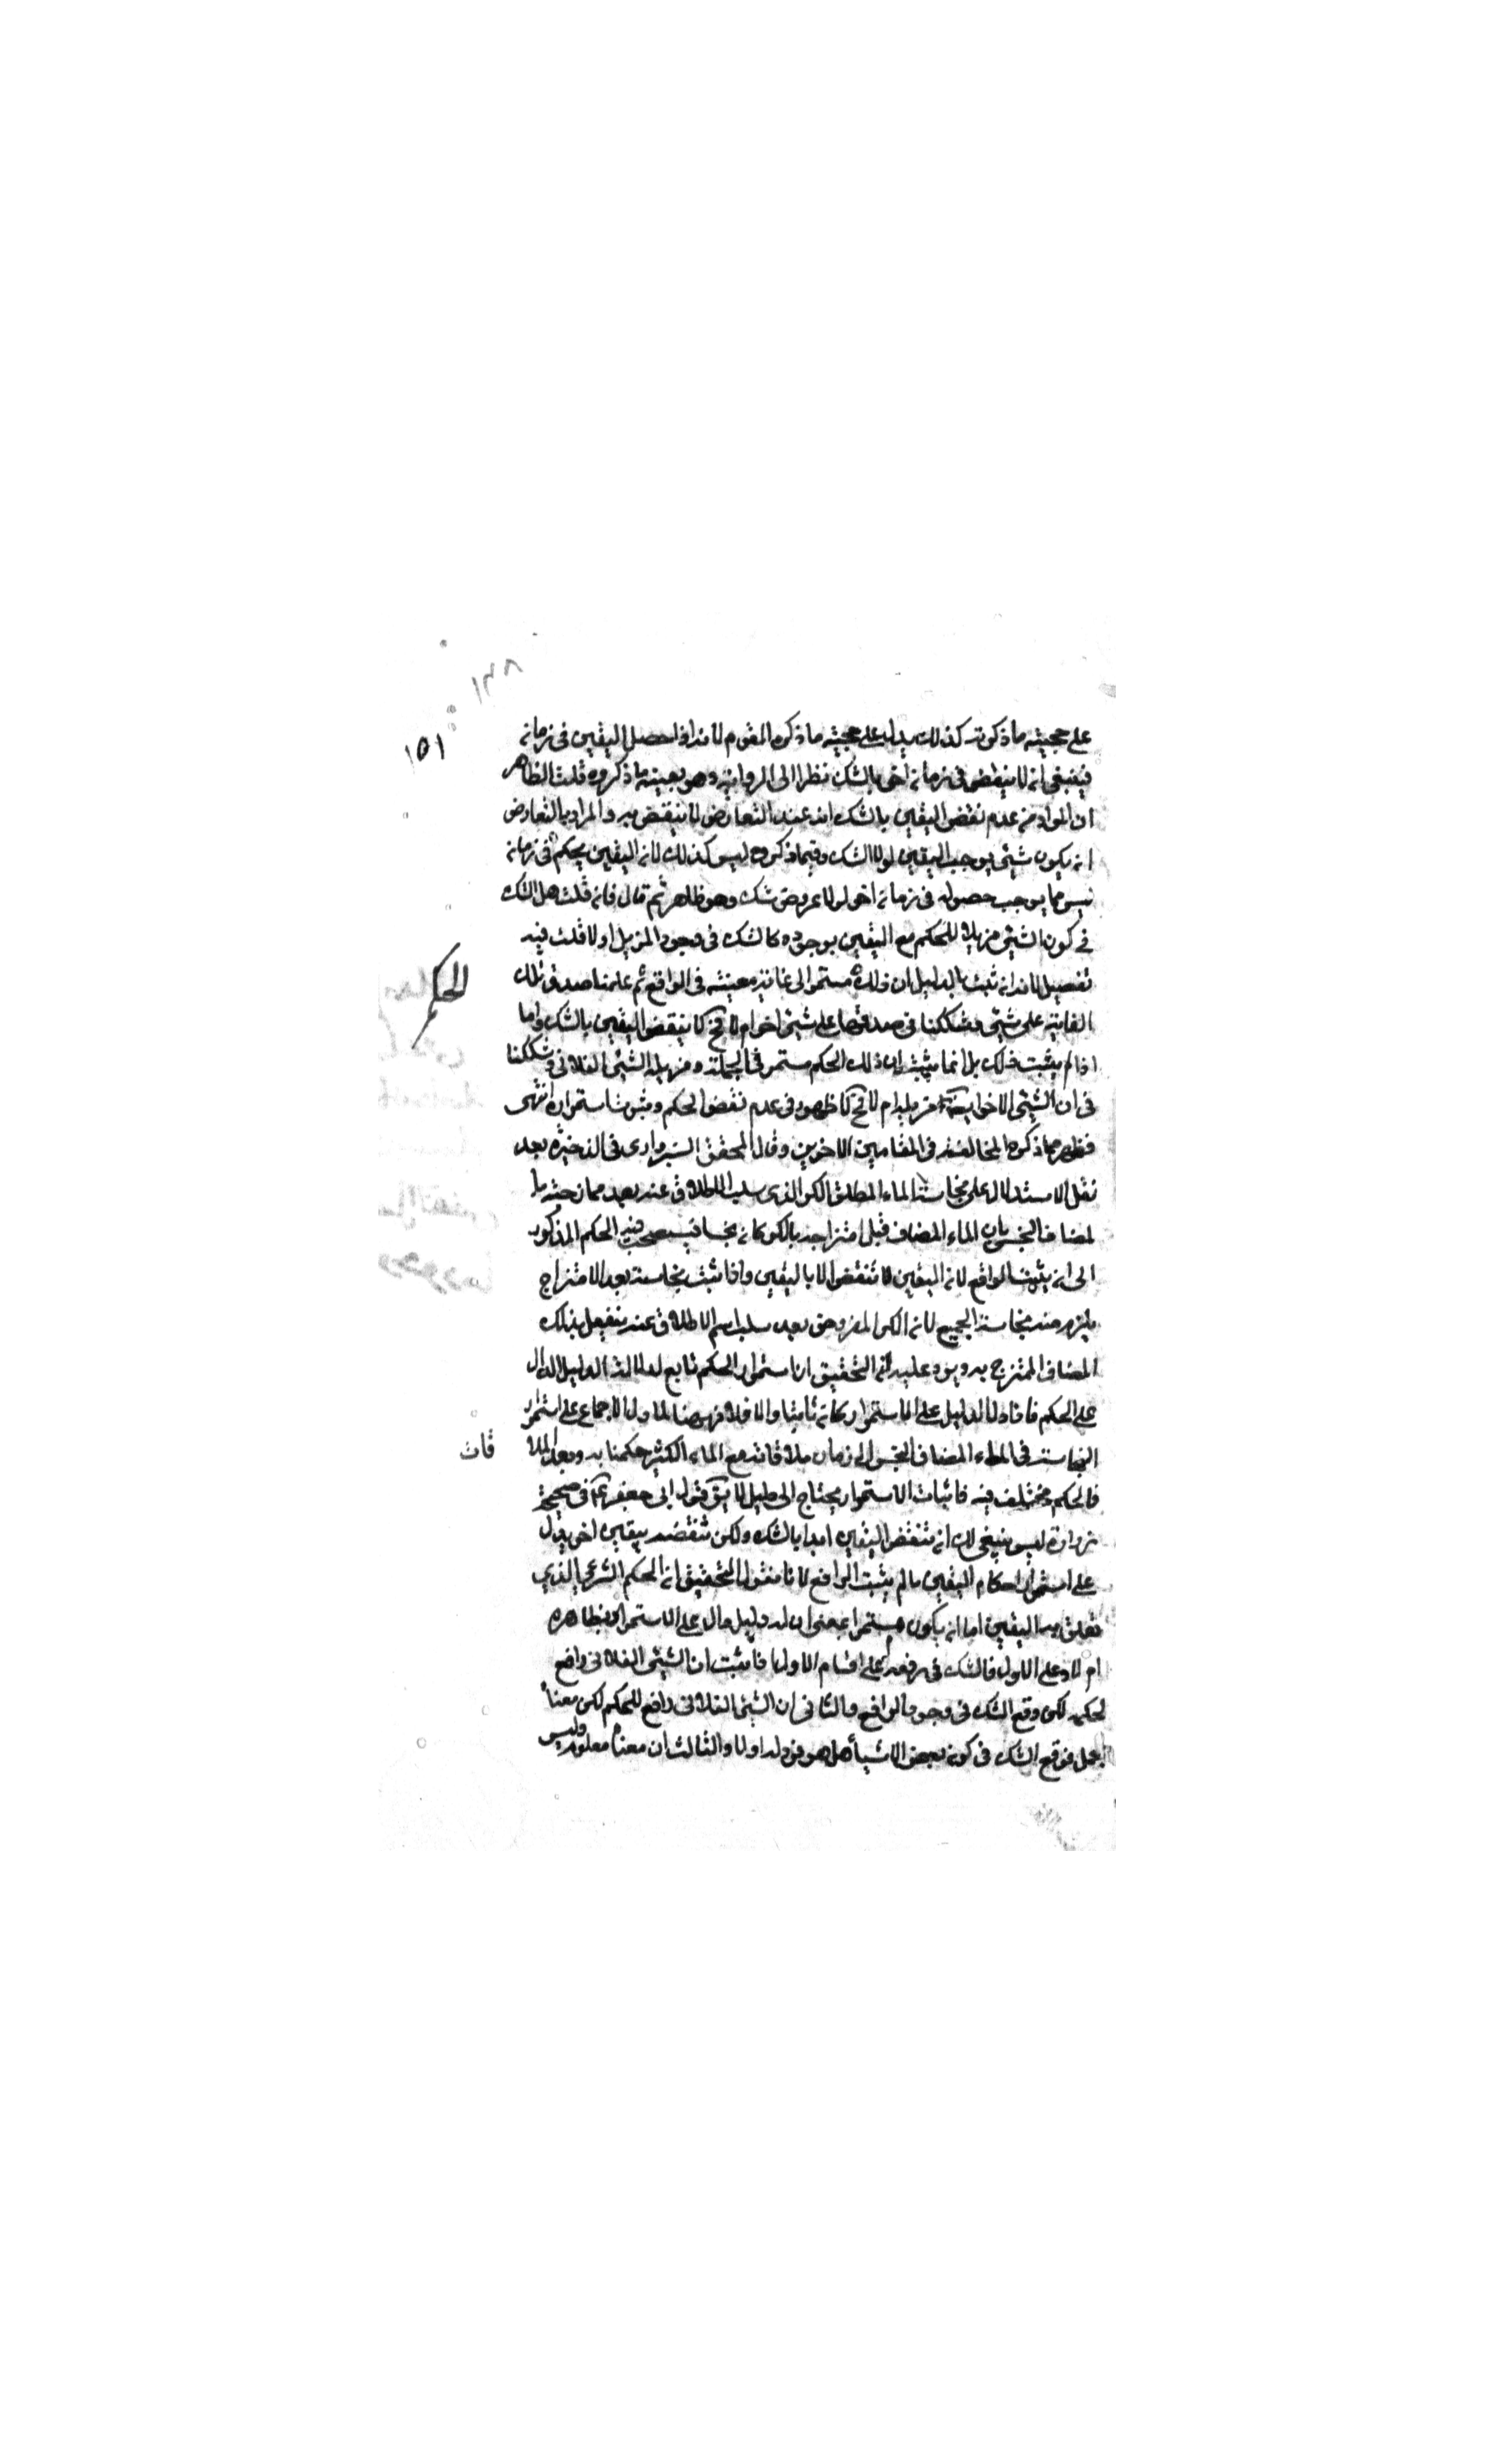 ١٥١
على حجيته ما ذكرته كذلك يدل على حجيته ما ذكره القوم لانه اذا حصل اليقين في زمان
فينبغي ان لا ينقض في زمان اخر بالشك نظرا الى الرواية وهو بعينه ما ذكروه قلت الظاهر
ان المراد من عدم نقض اليقين بالشك انه عند التعارض لا ينقض به والمراد بالتعارض
ان يكون شيئ يوجب اليقين لولا الشك وفيما ذكروه ليس كذلك لان اليقين بحكم في زمان
ليس مما يوجب حصوله في زمان اخر لولا عروض شك وهو ظاهر ثم قال فان قلت هل الشك
في كون الشيئ مزيلا للحكم مع اليقين بوجوده كالشك في وجود المزيل اولا قلت فيه
تفصيل لانه ان ثبت بالدليل ان ذلك مستمر الى غاية معينة في الواقع ثم علمنا صدق تلك
الحكم
الغاية على شيئ وشككنا في صدقها على شيئ اخر ام لا فح لا ينقض اليقين بالشك واما
اذا لم يثبت ذلك بل انما يثبت ان ذلك الحكم مستمر في الجملة ومزيله الشيئ الفلاني وشككنا
في ان الشيئ الاخر ايضا مزيله ام لا فح لا ظهور في عدم نقض الحكم وثبوت استمراره انتهى
فظهر مما ذكره المخالفة في المقامين الاخرين وقال المحقق السبزواري في الذخيرة بعد
نقل الاستدلال على نجاسة الماء المطلق الكر الذي سلب الاطلاق عنه بعد ممازجته با
لمضاف النجس بان الماء المضاف قبل امتزاجه بالكر كان نجسا فيستصحب فيه الحكم المذكور
الى ان يثبت الرافع لان اليقين لا تنقض الا باليقين واذا ثبت نجاسته بعد الامتزاج
يلزم منه نجاسة الجميع لان الكر المفروض بعد سلب اسم الاطلاق عنه ينفعل بذلك
المضاف الممتزج به ويرد عليه ان التحقيق ان استمرار الحكم تابع لدلالة الدليل الدال
على الحكم فاذا دل الدليل على الاستمرار كان ثابتا والا فلا فههنا لما دل الاجماع على استمرار
النجاسة في الماء المضاف النجس الى زمان ملاقاته مع الماء الكثير حكمنا به وبعد الملا
قات
فالحكم مختلف فيه فاثبات الاستمرار يحتاج الى دليل لا يق قول ابي جعفر ع في صحيحة
زرارة ليس ينبغي لك ان تنقض اليقين ابدا بالشك ولكن تنقضه بيقين اخر يدل
على استمرار احكام اليقين ما لم يثبت الرافع لانا نقول التحقيق ان الحكم الشرعي الذي
تعلق به اليقين اما ان يكون مستمرا بمعنى ان له دليل دال على الاستمرار بظاهره
ام لا وعلى الاول فالشك في رفعه على اقسام الاول اذا ثبت ان الشيئ الفلاني رافع
لحكمه لكن وقع الشك في وجود الرافع والثاني ان الشيئ الفلاني رافع للحكم لكن معناه
مجمل فوقع الشك في كون بعض الاشياء هل هو فرد له اولا والثالث ان معناه معلوم وليس